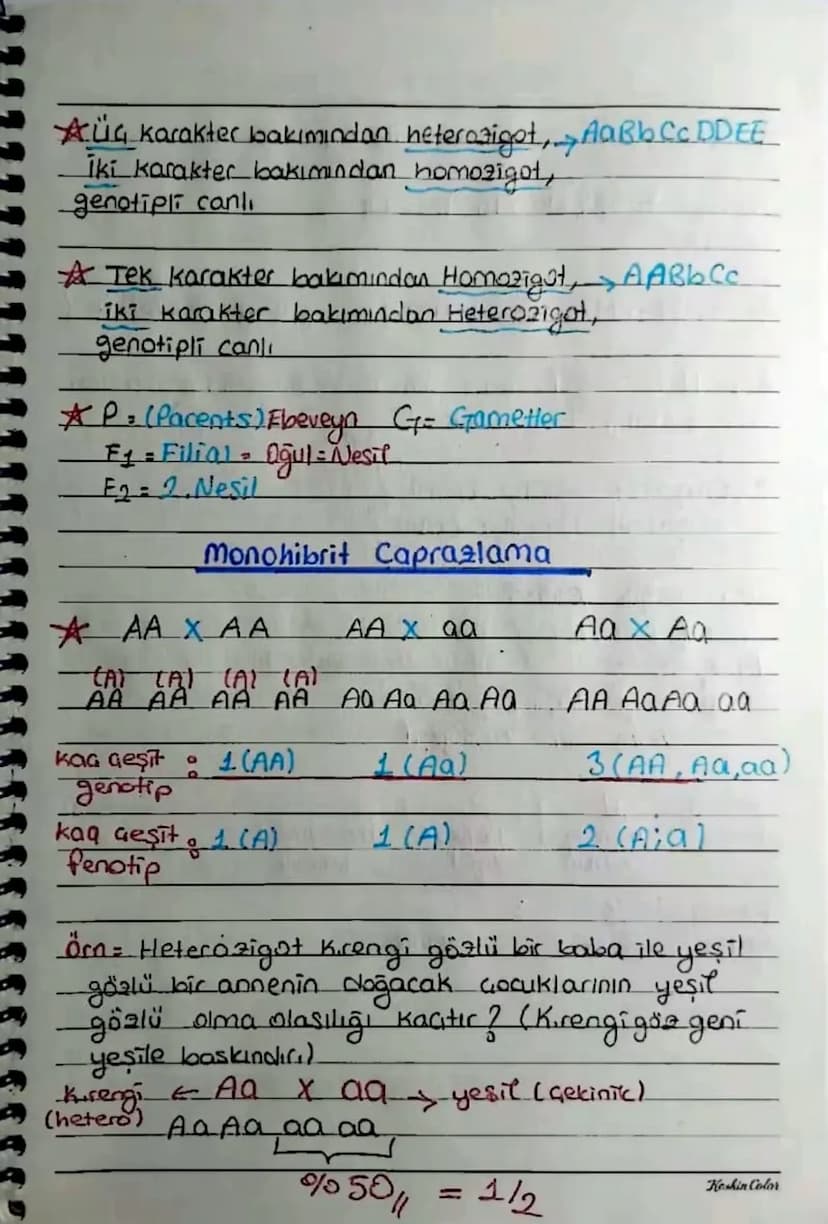 ☆ Üç karakter bakımından heterozigot, → AaBbCcDDEE
İki karakter bakımından homozigot,
genotipli canlı
☆ Tek karakter bakımından Homozigot, → AABbCc
iki karakter bakımından Heterozigot,
genotipli canlı
☆ P = (Parents) Ebeveyn G = Gametler
F1 = Filial = Oğul = Nesil
F2 = 2. Nesil
Monohibrit Çaprazlama
☆ AA X AA AA X aa Aa X Aa
(A) (A) (A) (A)
AA AA AA AA Aa Aa Aa Aa AA Aa Aa aa
kaç çeşit : 1 (AA) 1 (Aa) 3 (AA, Aa, aa)
genotip
kaç çeşit : 1 (A) 1 (A) 2 (A;a)
fenotip
Örn = Heterozigot K.rengi gözlü bir baba ile yeşil
gözlü bir annenin doğacak çocuklarının yeşil
gözlü olma olasılığı kaçtır? (K.rengi göz geni
yeşile baskındır.)
K.rengi ← Aa X aa → yeşil (çekinik)
(hetero) Aa Aa aa aa
%50 // = 1/2
Keskin Color